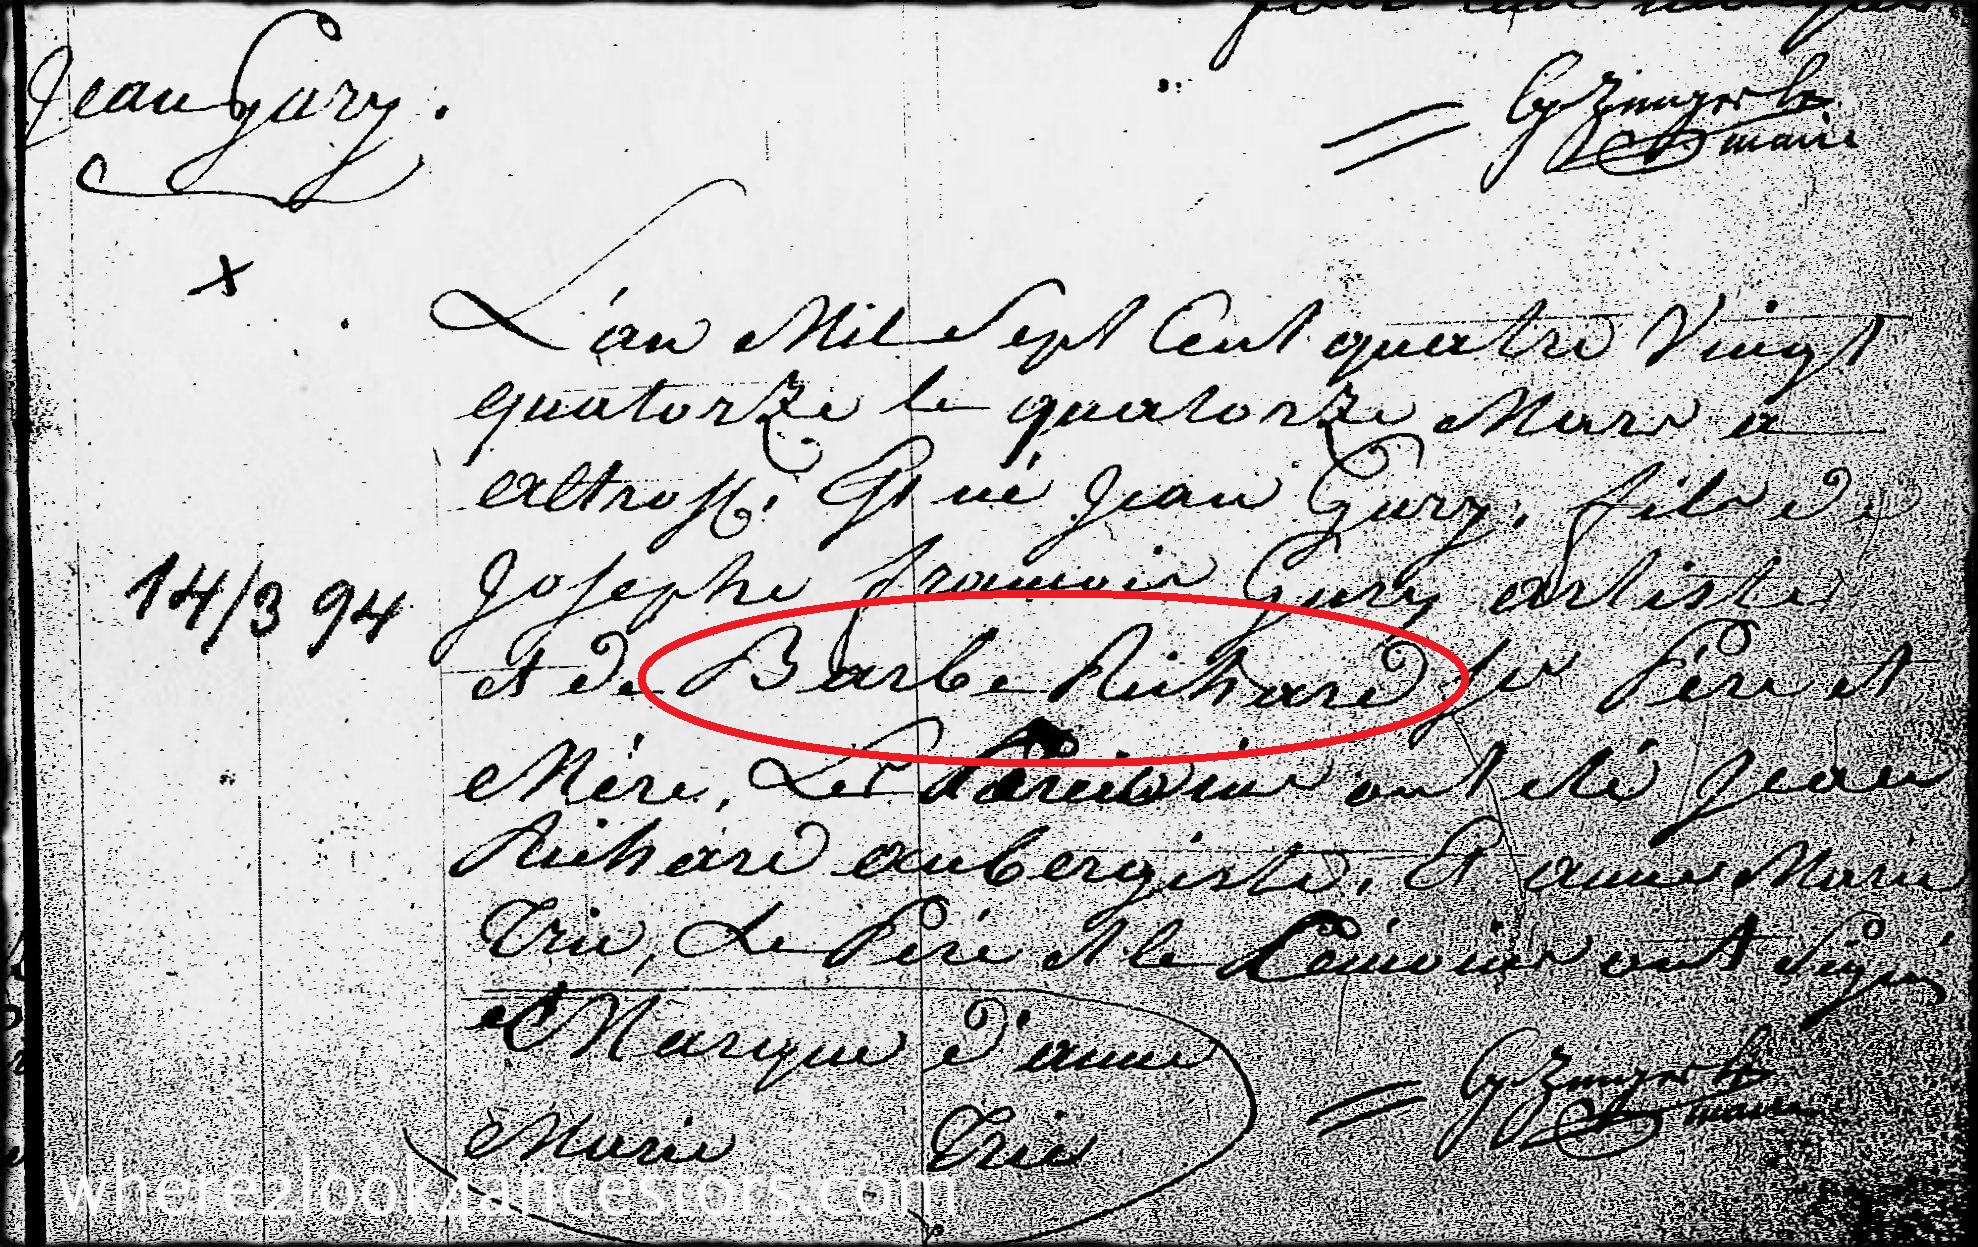 Jean Gury.
maire
x
L'an Mil Sept Cent quatre Vingt
quatorze le quatorze Mars a
altroff. Est né Jean Gury, fils de
14/3 94
Josephe francois Gury artiste
et de Barbe Richard ses Père et
Mère, Les Témoins ont été Jean
Richard aubergiste, Et anne Marie
Trie, Le Père et le Témoins ont Signés
et Marque d'anne
Marie Trie
maire
where2look4ancestors.com